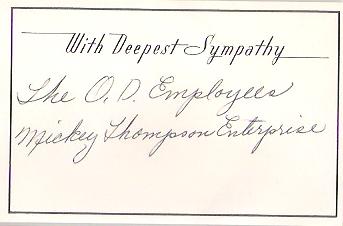 With Deepest Sympathy
The O.D. Employees
Mickey Thompson Enterprise